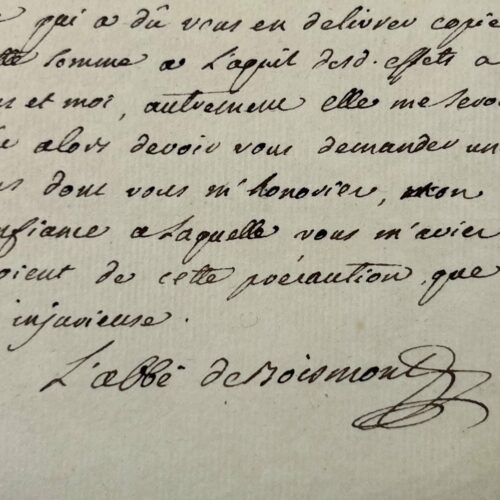 qui a dû vous en delivrer copie
somme a l'aquit desd. effets a
et moi, autrement elle me seroi
alors devoir vous demander un
dont vous m'honoriez, mon
nfiance a laquelle vous m'aviez
oient de cette précaution, que
injurieuse.
L'abbé de Boismont